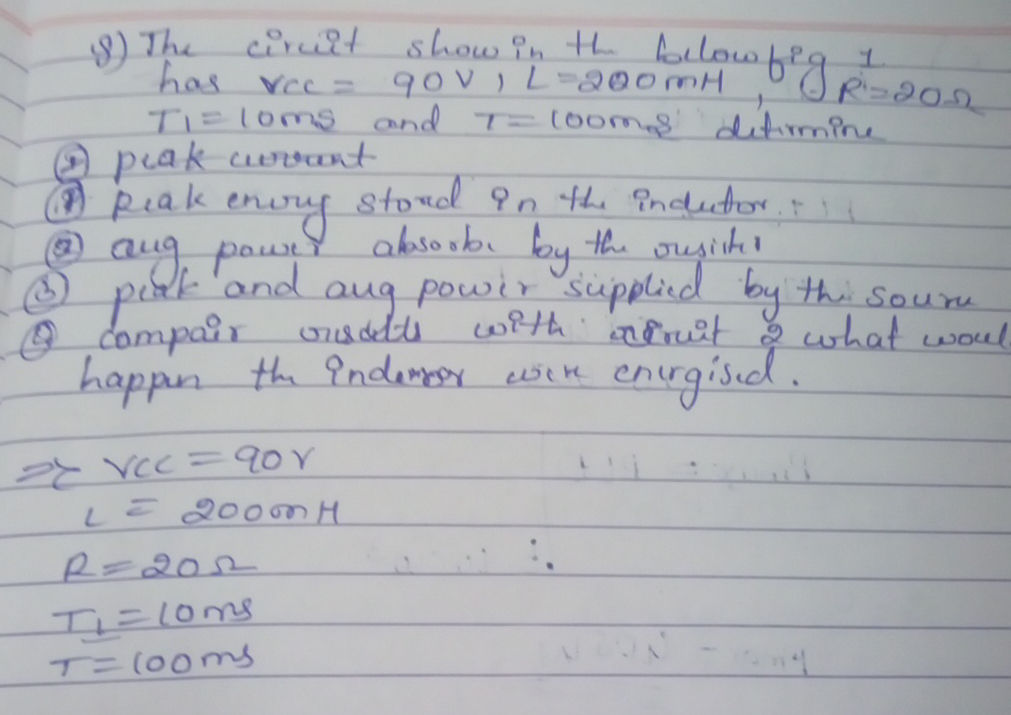 8) The circuit show in the follow fig 1
has VCC = 90V, L=200mH, R=20Ω
T1=10ms and T=100ms determine
① peak current
peak energy stored in the inductor
② avg power absorbe by the
③ peak and avg power supplied by the source
④ compair with circuit 2 what woul
happen the were energised.
=> VCC = 90V
L = 200mH
R = 20Ω
T1 = 10ms
T = 100ms